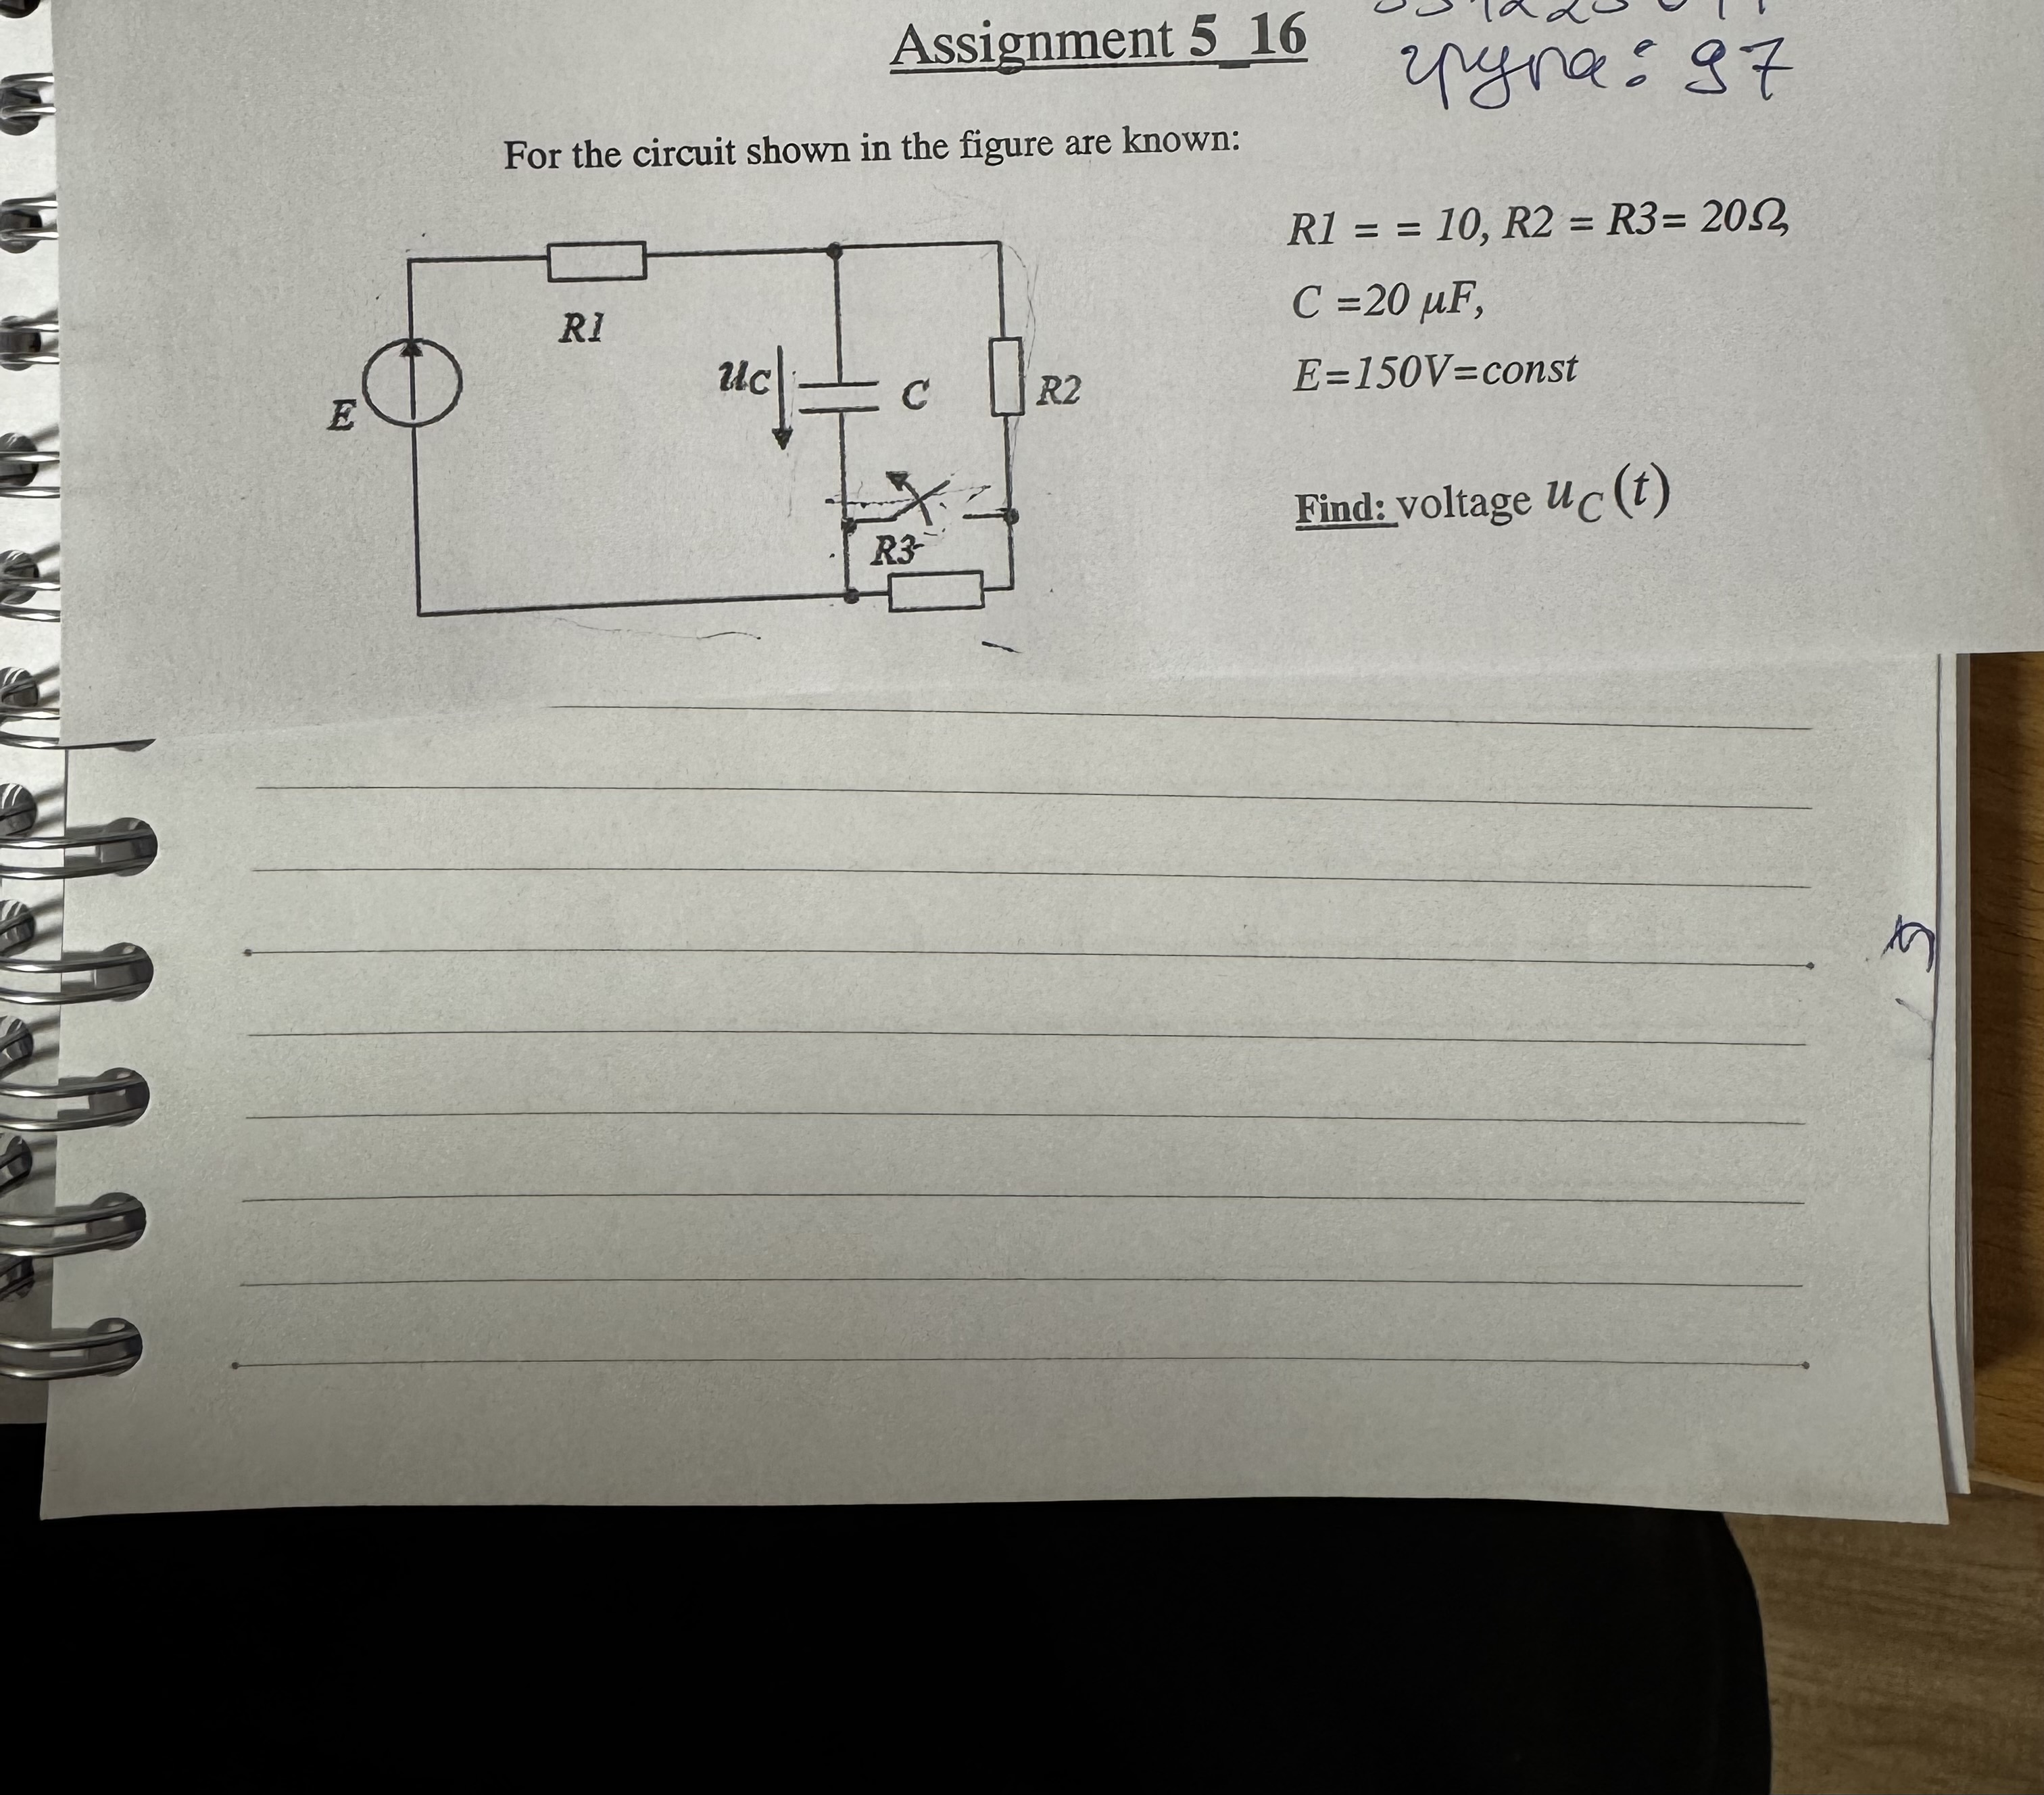 Assignment 5_16
група: 97
For the circuit shown in the figure are known:
R1 = = 10, R2 = R3= 20Ω,
C =20 μF,
E=150V=const
Find: voltage uC(t)
R1
uC
C
R2
E
R3